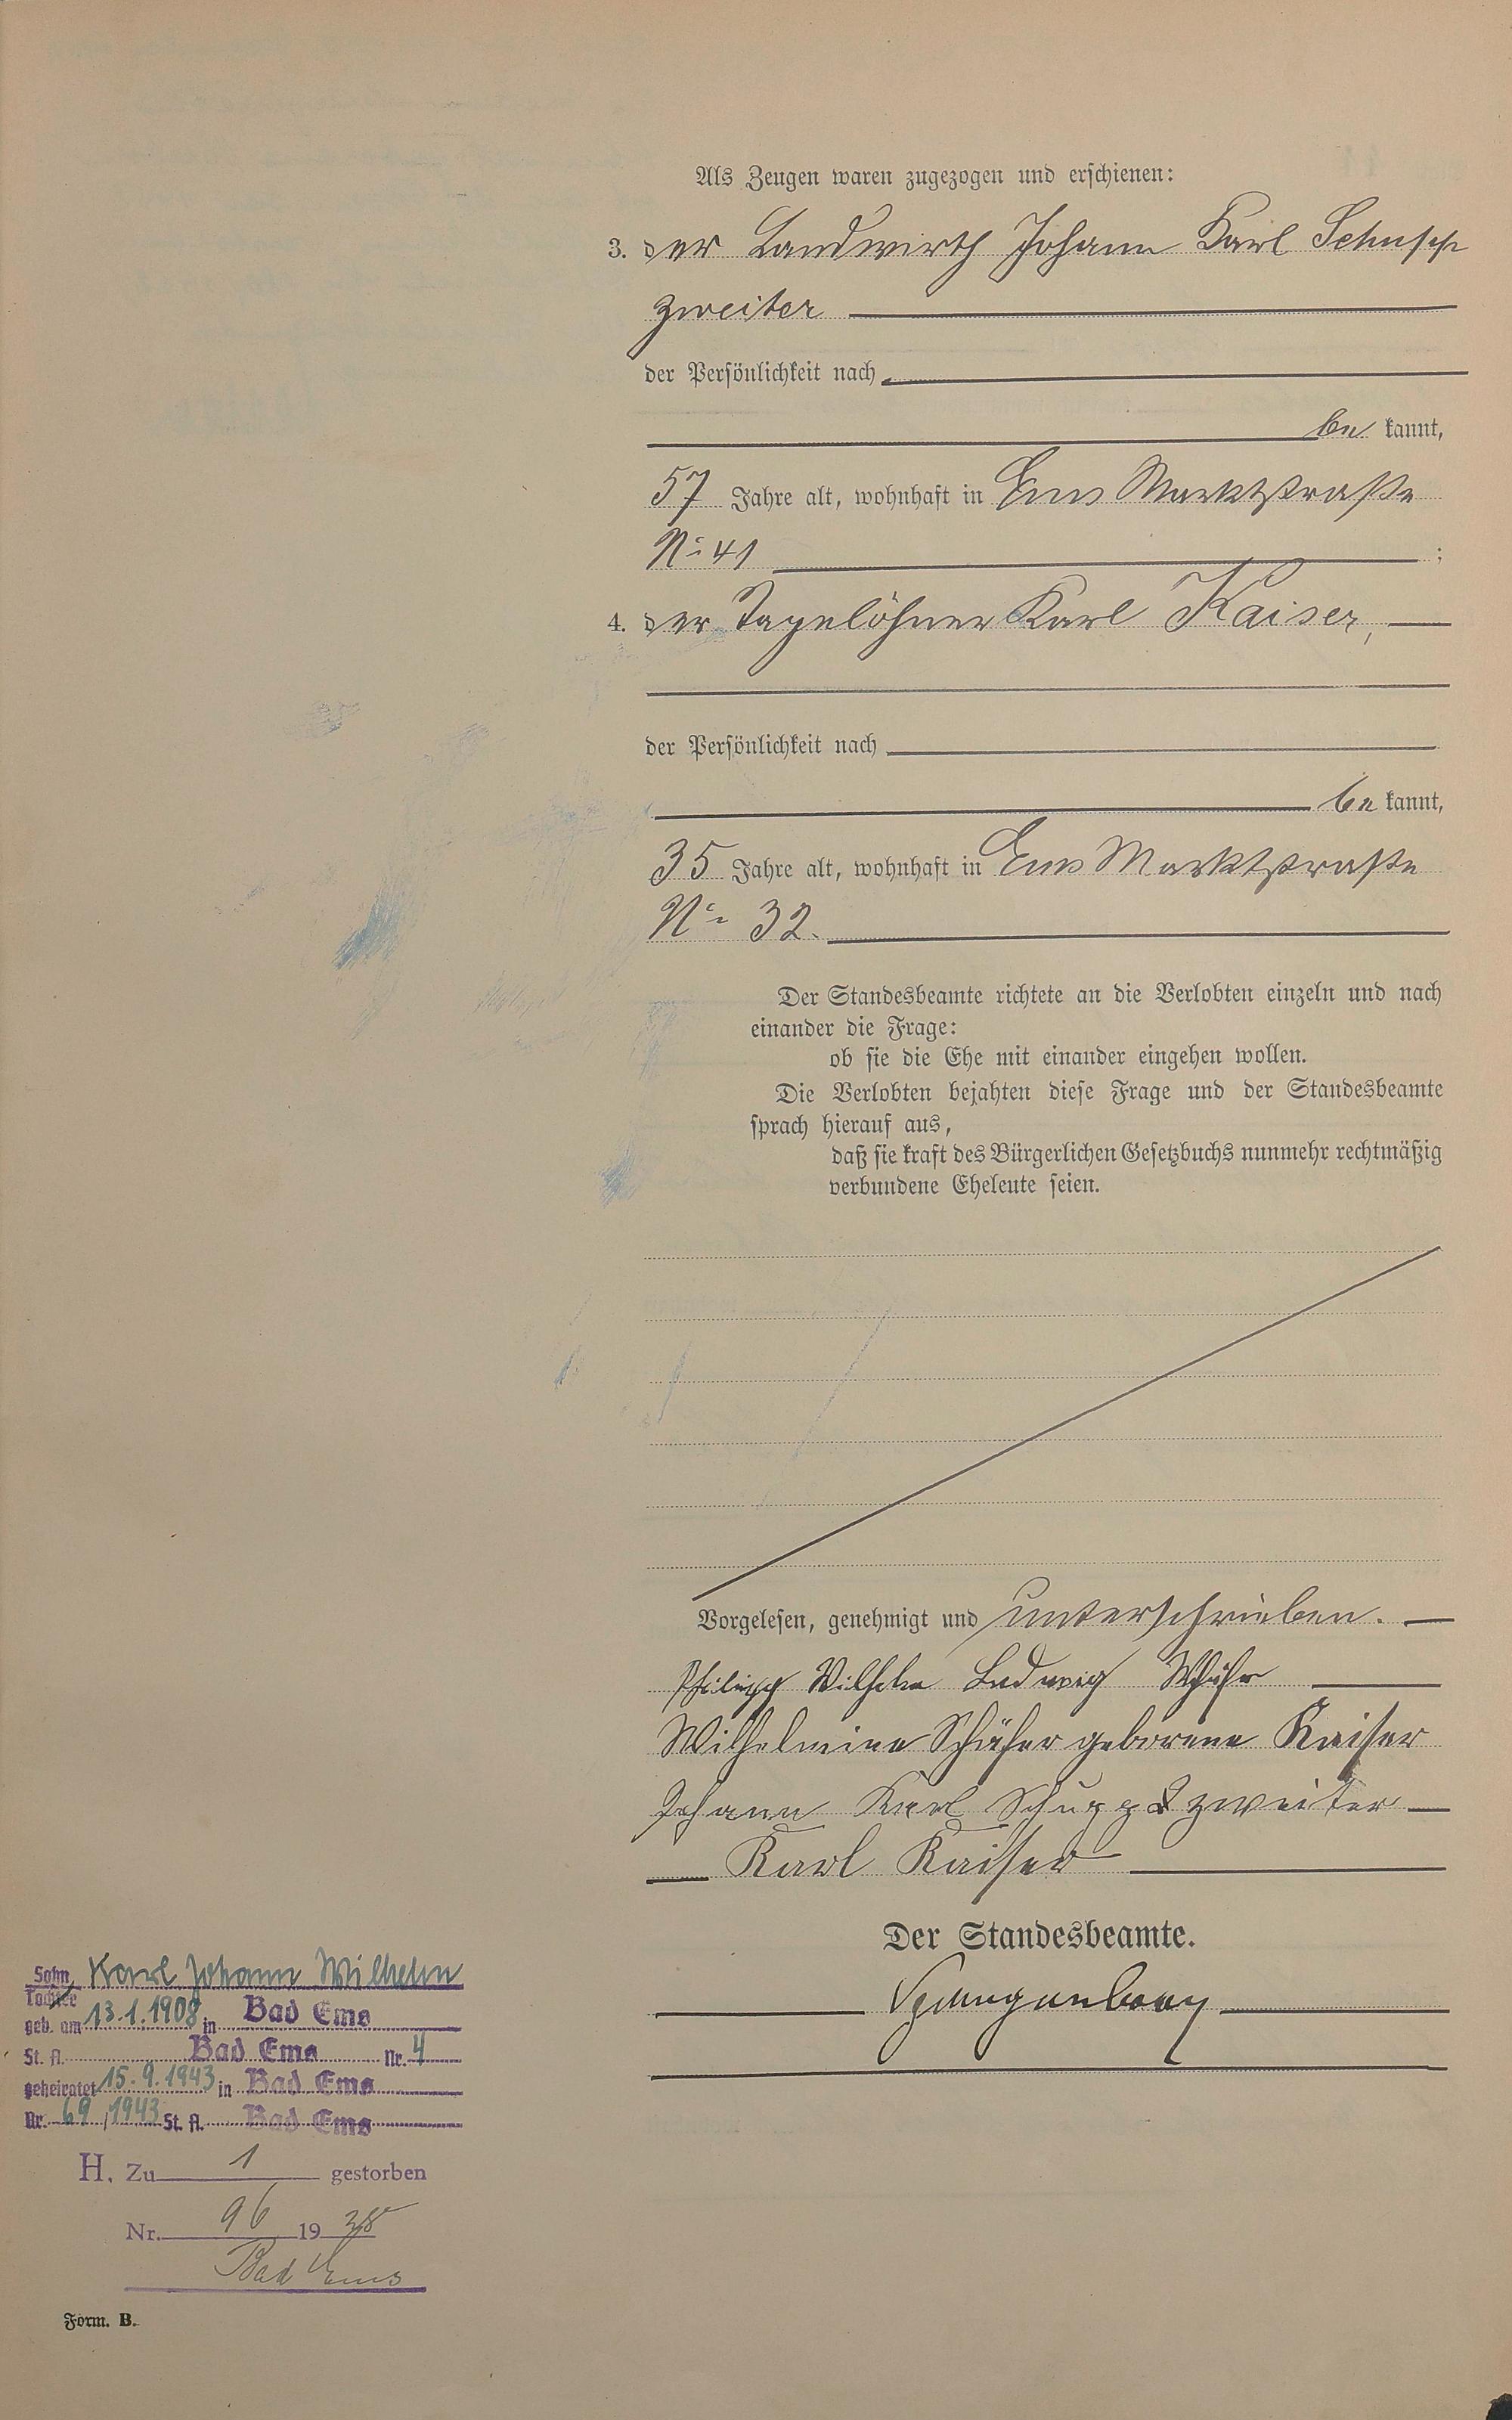 Als Zeugen waren zugezogen und erschienen:
3. der Landwirth Johann Karl Schupp
zweiter
der Persönlichkeit nach
be kannt,
57 Jahre alt, wohnhaft in Ems Marktstraße
No 41 ;
4. der Tagelöhner Karl Kaiser,
der Persönlichkeit nach
be kannt,
35 Jahre alt, wohnhaft in Ems Marktstraße
No 32.
Der Standesbeamte richtete an die Verlobten einzeln und nach
einander die Frage:
ob sie die Ehe mit einander eingehen wollen.
Die Verlobten bejahten diese Frage und der Standesbeamte
sprach hierauf aus,
daß sie kraft des Bürgerlichen Gesetzbuchs nunmehr rechtmäßig
verbundene Eheleute seien.
Vorgelesen, genehmigt und unterschrieben.
Philipp Wilhelm Ludwig Schäfer
Wilhelmine Schäfer geborene Kaiser
Johann Karl Schupp zweiter
Karl Kaiser
Der Standesbeamte.
Sohn Karl Johann Wilhelm
Tochter
geb. am 13.1.1908 in Bad Ems
St. A. Bad Ems Nr. 4
geheiratet 15.9.1943 in Bad Ems
Nr. 69/1943 St. A. Bad Ems
H. Zu 1 gestorben
Nr. 96 1938
Bad Ems
Form. B.